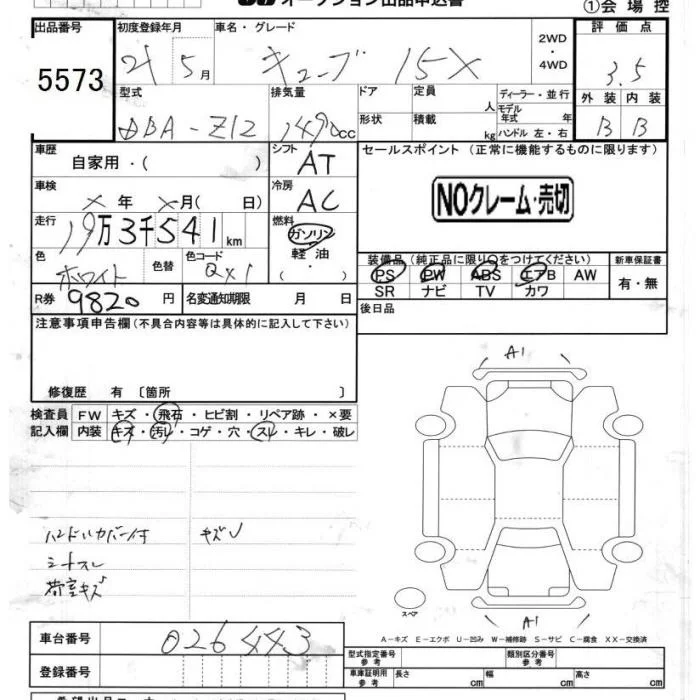 オークション出品申込書 ①会場控
出品番号 初度登録年月 車名・グレード 2WD・4WD 評価点
5573 21 5月 キューブ 15X 3.5
型式 排気量 ドア 定員 人 ディーラー・並行 外装 内装
DBA-Z12 1490cc 形状 積載 kg モデル年式 年 ハンドル 左・右 B B
車歴 自家用・( ) シフト AT セールスポイント (正常に機能するものに限ります)
車検 ×年 ×月( 日) 冷房 AC NOクレーム・売切
走行 19万3千541km 燃料 ガソリン
軽油
・
( )
色 ホワイト 色替 色コード QX1 装備品(純正品に限り○をつけてください) 新車保証書
PS PW ABS エアB AW 有・無
SR ナビ TV カワ
R券 9820円 名変通知期限 月 日 後日品
注意事項申告欄(不具合内容等は具体的に記入して下さい)
A1
修復歴 有〔箇所 〕
検査員 FW キズ・飛石・ヒビ割・リペア跡・×要
記入欄 内装 キズ・汚れ・コゲ・穴・スレ・キレ・破レ
ハンドルカバー付 キズ
シートスレ
荷室キズ
スペア
A1
車台番号 026443 A-キズ E-エクボ U-凹み W-補修跡 S-サビ C-腐食 XX-交換済
型式指定番号参考 類別区分番号参考
登録番号 車庫証明用参考 長さ cm 幅 cm 高さ cm